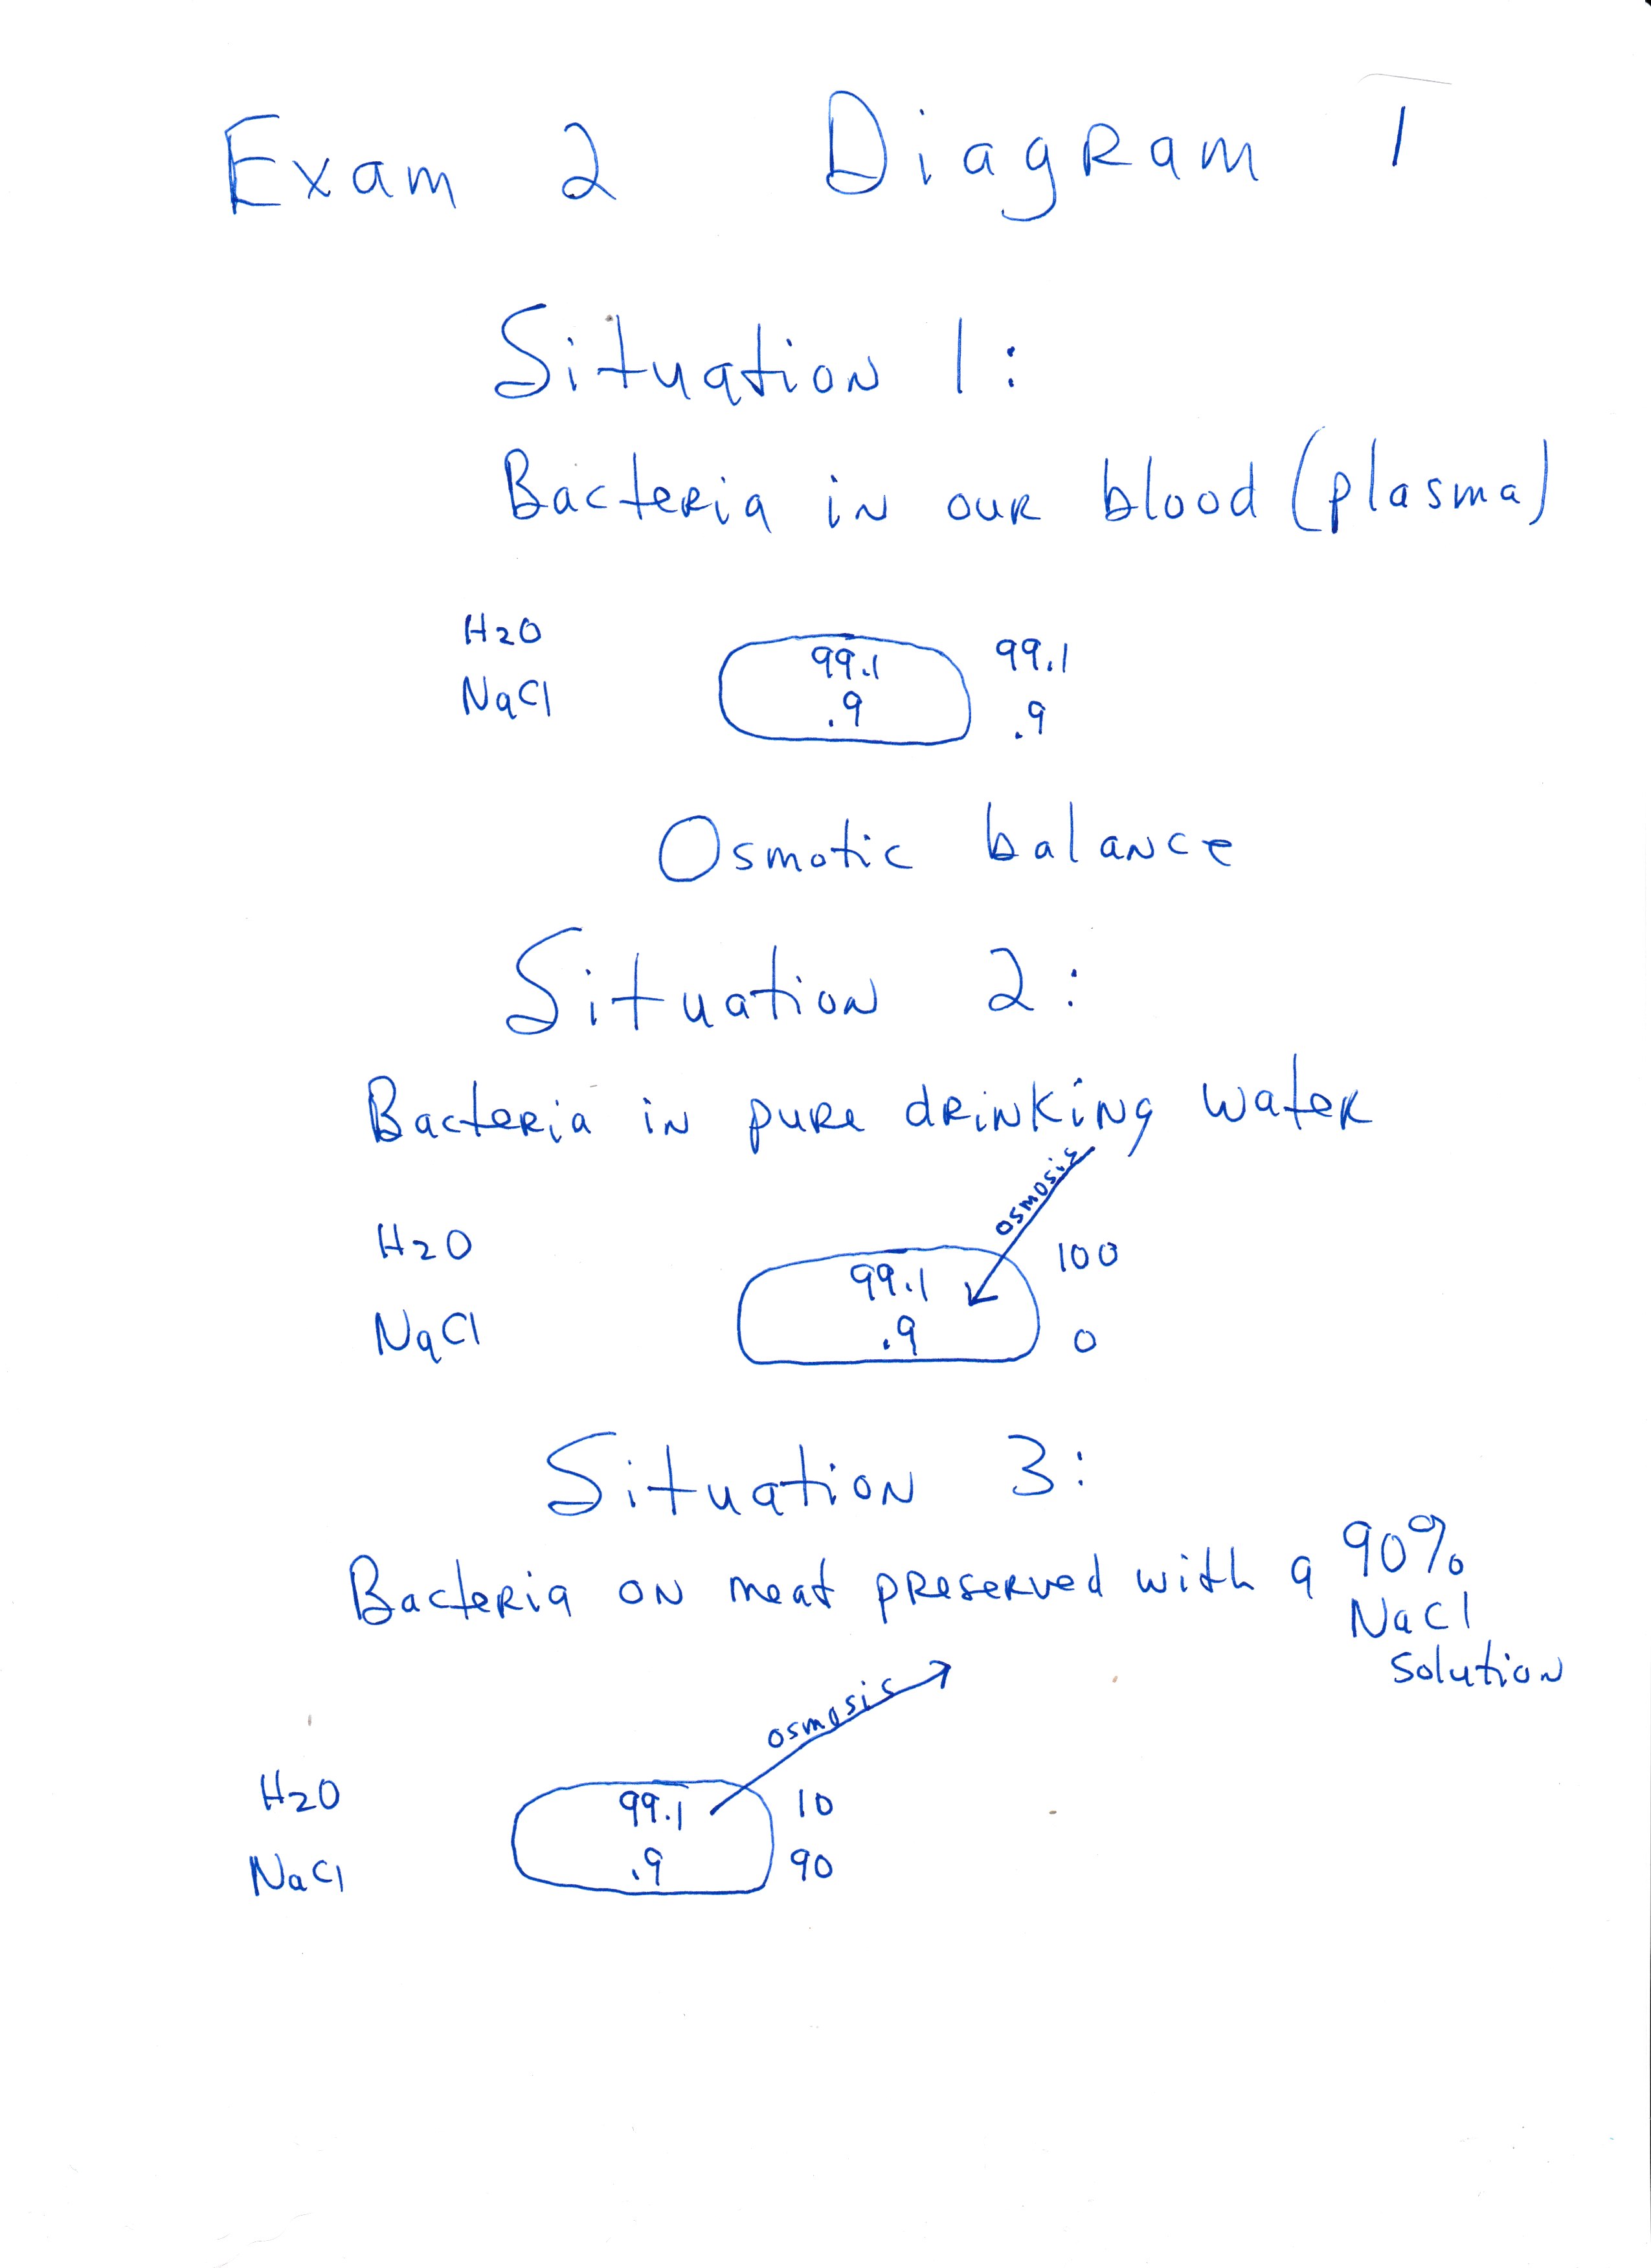 Exam 2 Diagram 1
Situation 1:
Bacteria in our blood (plasma)
H2O 99.1 99.1
NaCl .9 .9
Osmotic balance
Situation 2:
Bacteria in pure drinking water
osmosis
H2O 99.1 100
NaCl .9 0
Situation 3:
Bacteria on meat preserved with a 90%
NaCl
Solution
osmosis
H2O 99.1 10
NaCl .9 90